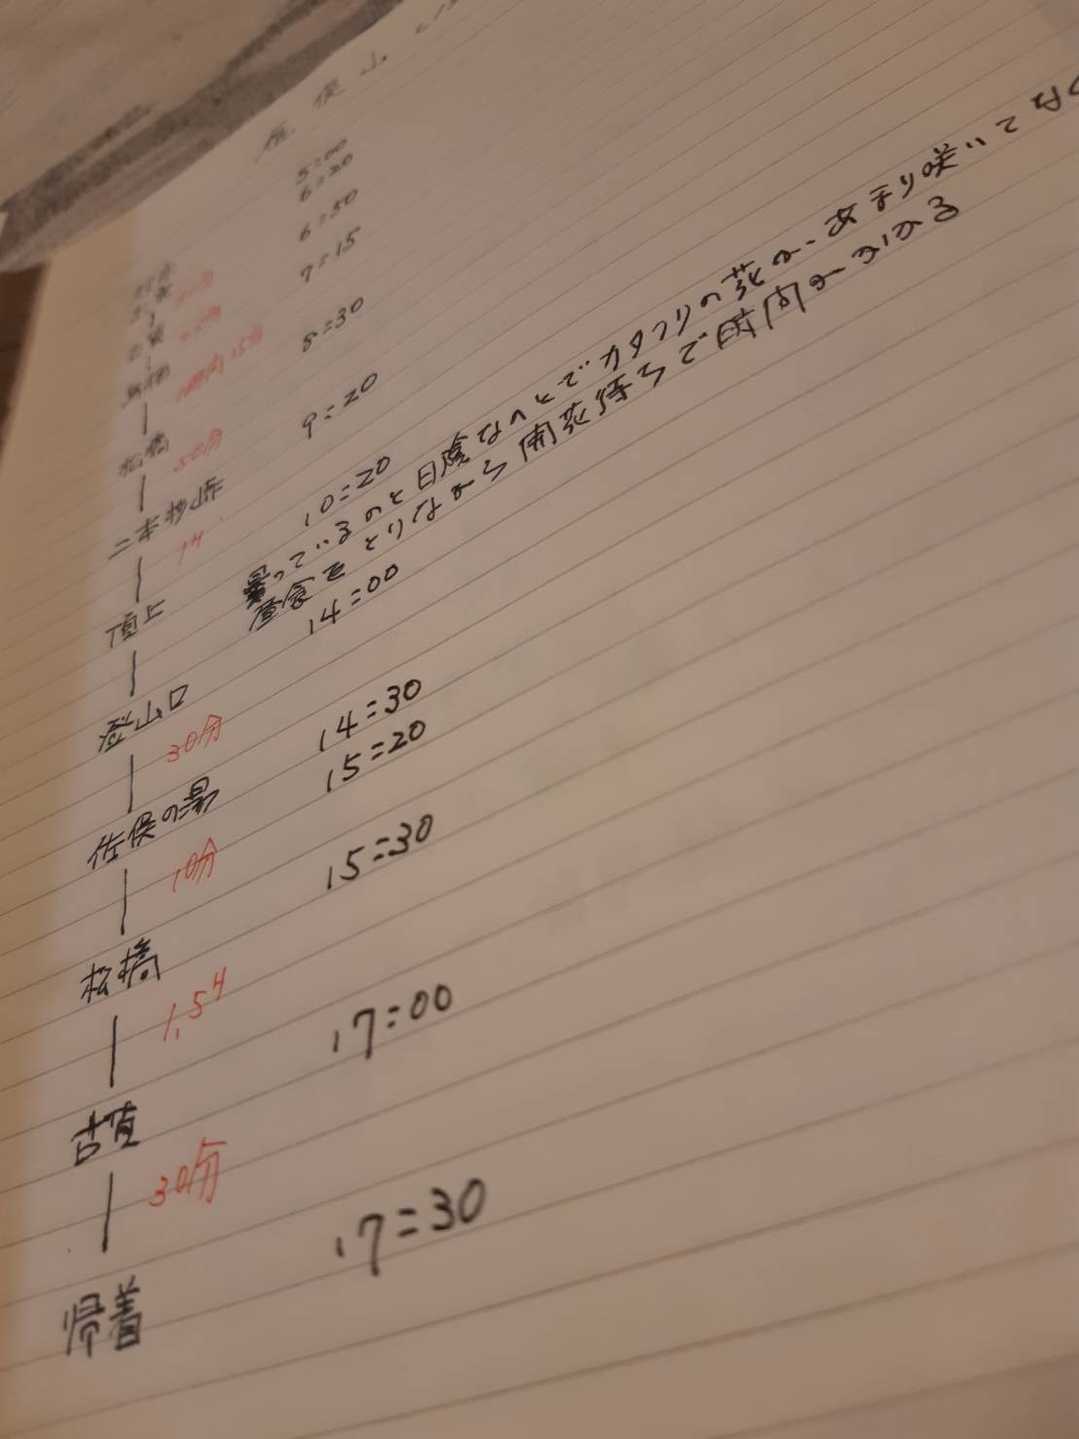 5:00
6:20
6:50
7:15
8:30
松橋
50分
9:20
二本杉峠
1H
10:20
頂上
曇っているのと日陰なのとでカタクリの花が、あまり咲いてなく
昼食をとりながら開花待ちで時間がかかる
14:00
登山口
30分
14:30
佐俣の湯
15:20
10分
15:30
松橋
1,5H
17:00
古賀
30分
17:30
帰着